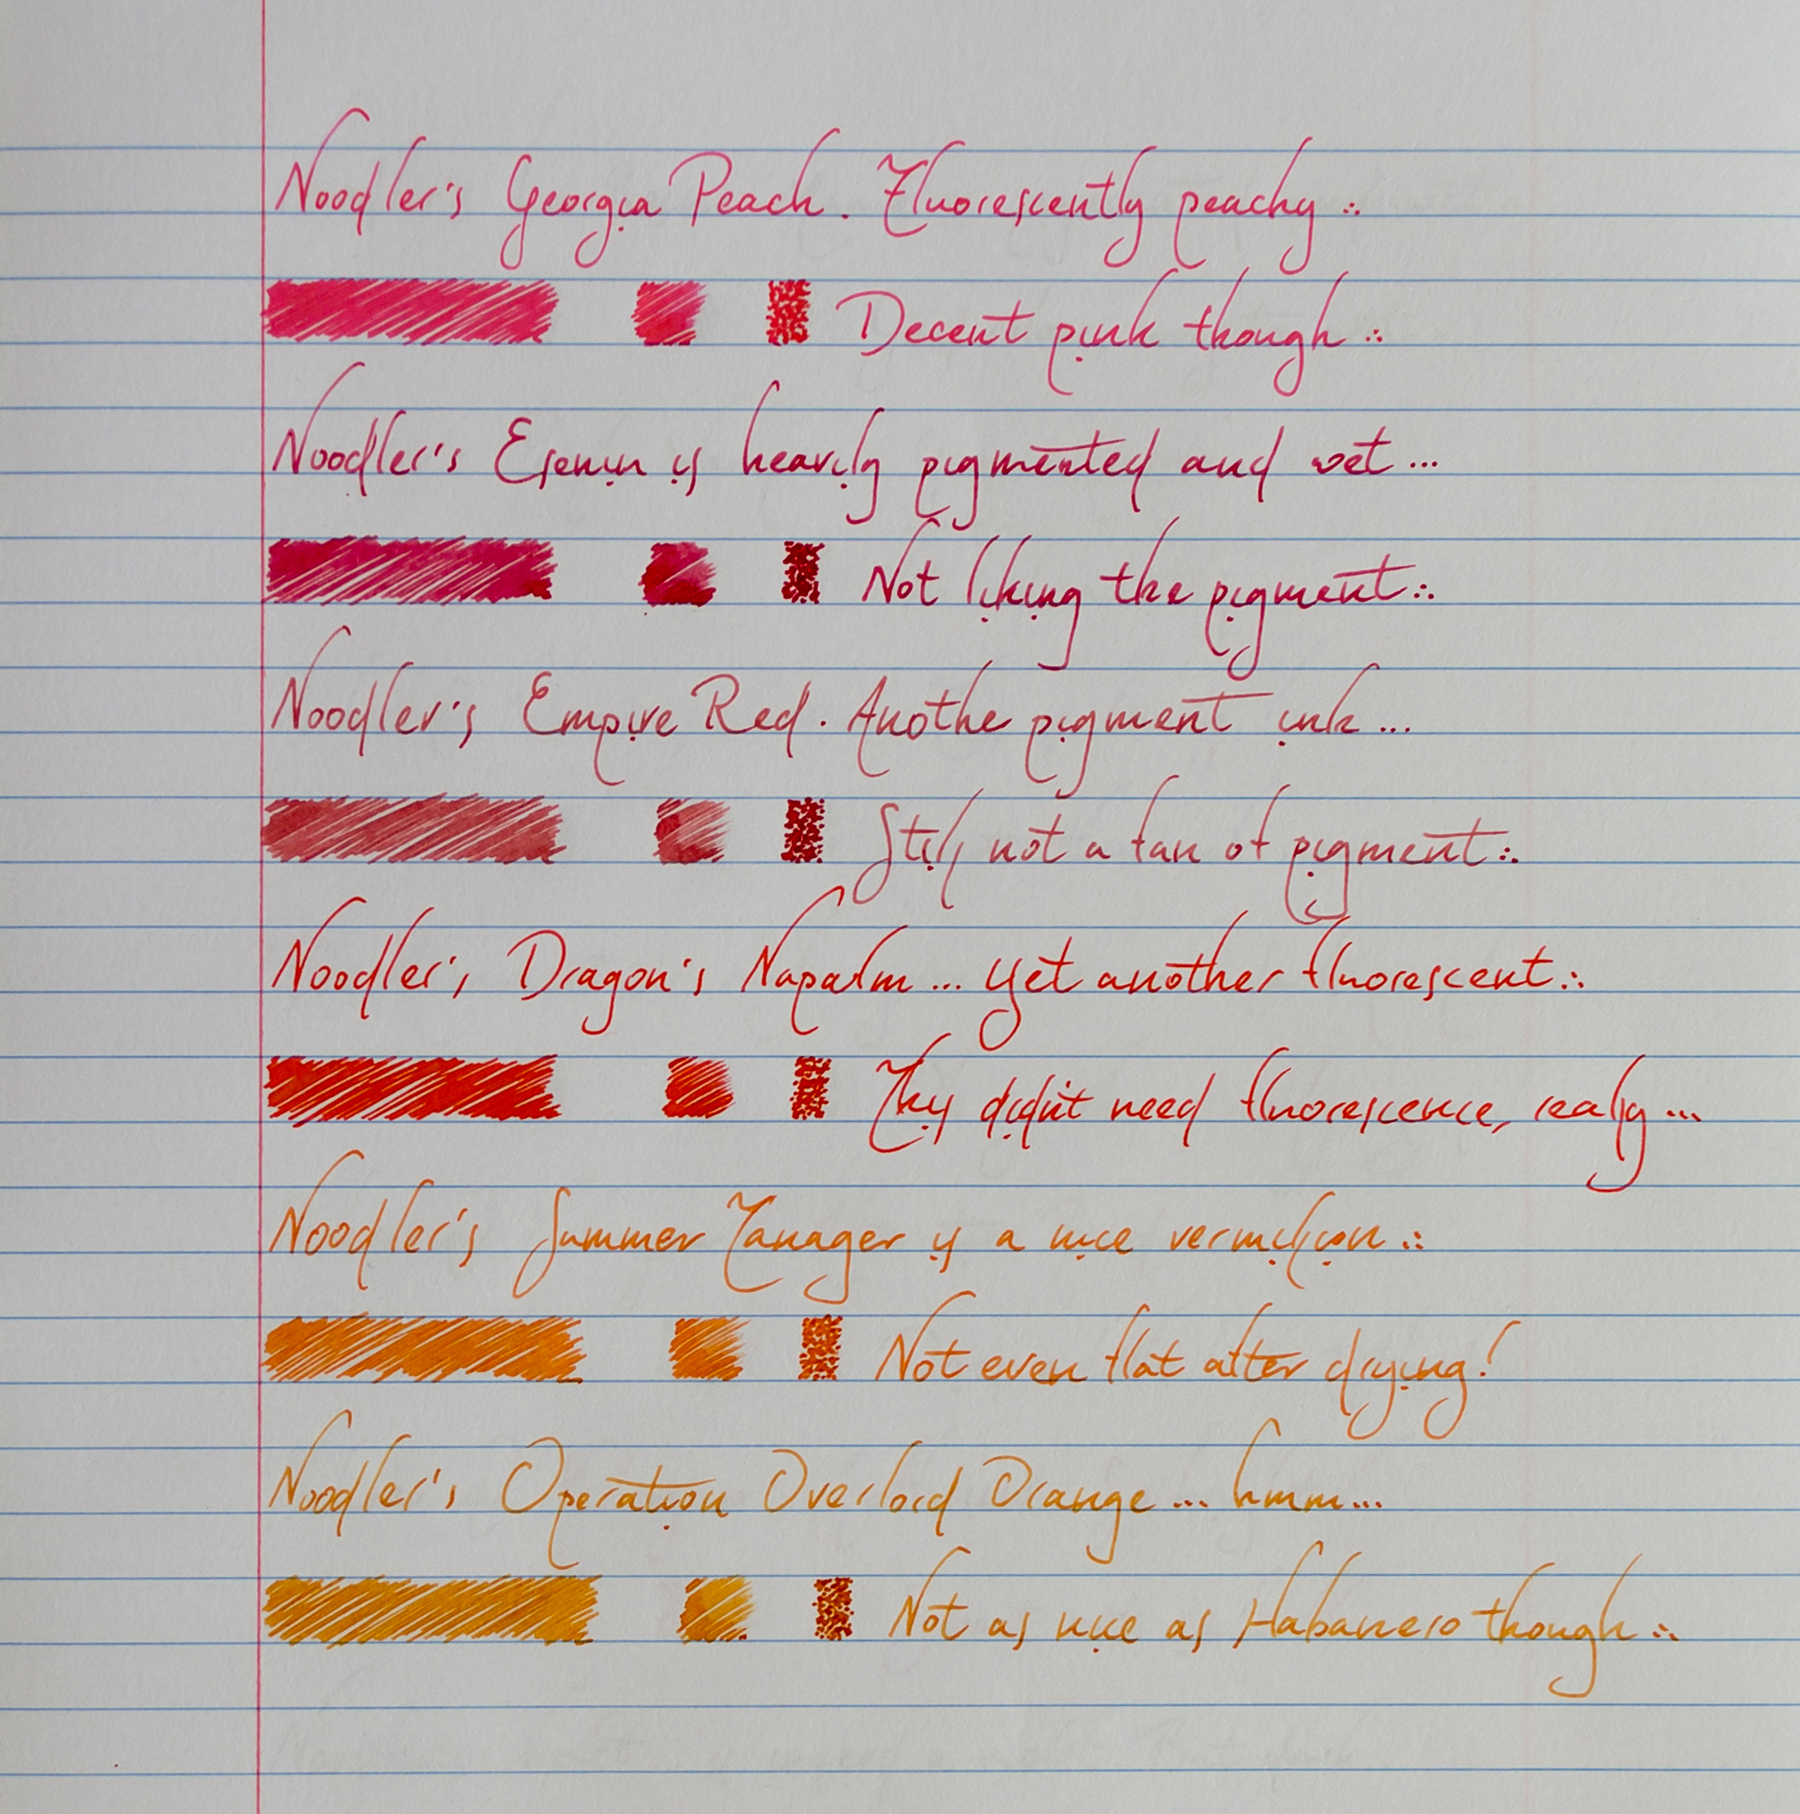 Noodler's Georgia Peach. Fluorescently peachy ∴
Decent pink though ∴
Noodler's Esenin is heavily pigmented and wet...
Not liking the pigment ∴
Noodler's Empire Red. Anothe pigment ink...
Still not a fan of pigment ∴
Noodler's Dragon's Napalm... yet another fluorescent ∴
They didn't need fluorescence, really...
Noodler's Summer Tanager is a nice vermilion ∴
Not even flat after drying!
Noodler's Operation Overlord Orange... hmm...
Not as nice as Habanero though ∴